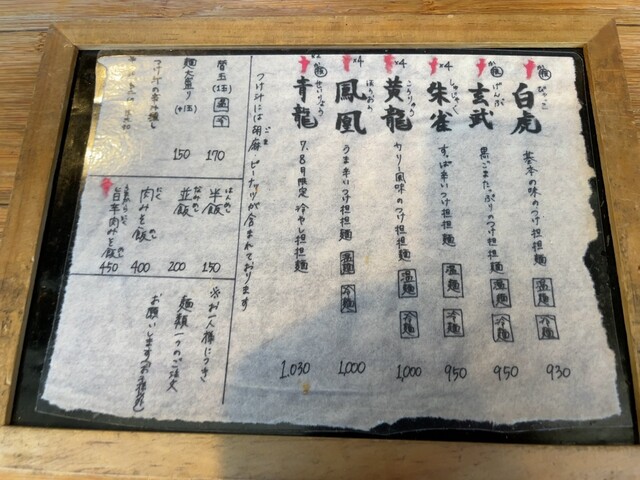 白虎 びゃっこ
基本の味のつけ担担麺 温麺 冷麺 930
玄武 げんぶ
黒ごまたっぷりのつけ担担麺 温麺 冷麺 950
×4
朱雀 すじゃく
すっぱ辛いつけ担担麺 温麺 冷麺 950
×4
黄龍 こうりゅう
カリー風味のつけ担担麺 温麺 冷麺 1,000
×4
鳳凰 ほうおう
うま辛いつけ担担麺 温麺 冷麺 1,000
青龍 せいりゅう
7、8月限定 冷やし担担麺 1,030
つけ汁には胡麻・ピーナツが含まれております
ごま
替玉(1玉) 温 冷 170
麺大盛り(+1玉) 150
半飯 はんめし 150
並飯 なみめし 200
肉みそ飯 にく めし 400
旨辛肉みそ飯 めし 450
※お一人様につき
麺類一つのご注文
お願いします